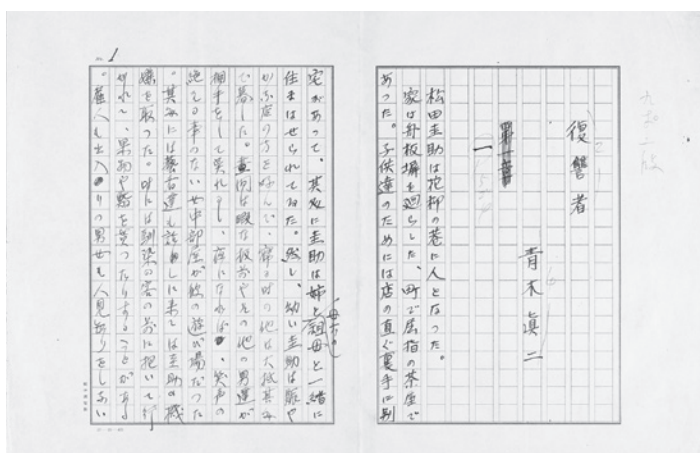 復讐者
青木眞二
一
松田圭助は花柳の巷に人となった。
家は舟板塀を廻らした、町で屈指の茶屋で
あった。子供達のためには店の直ぐ裏手に別
1
宅があって、其処に圭助は姉と祖母と一緒に
住まはせられてゐた。然し、幼い圭助は賑や
かな店の方を好んで、寝る時の他は大抵其処
で暮した。昼間は暇な板前やその他の男達が
相手をして呉れるし、夜になれば、笑声の
絶える事のない女中部屋が彼の遊び場だった
。其処には藝者達も話しに来ては圭助の機
嫌を取った。時には馴染の客の前に抱いて行
かれて、果物や菓子を貰ったりすることがある
。雇人も出入りの男女も人見知りをしない